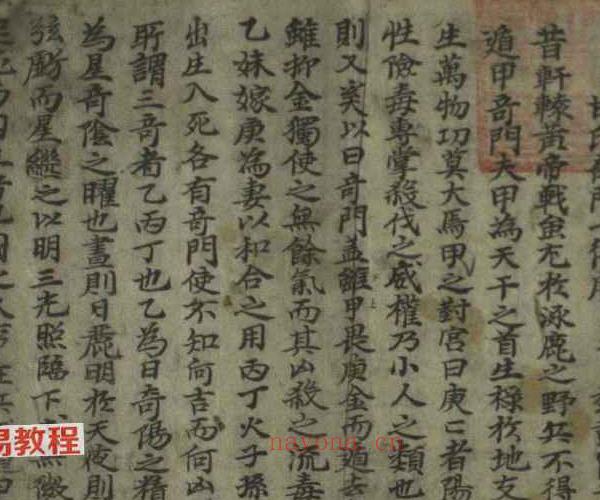 昔軒轅黃帝戰蚩尤於涿鹿之野兵不得
遁甲奇門夫甲為天干之首生祿於地
生萬物功莫大焉甲之對宮曰庚〻者陽
性險毒專掌殺伐之威權乃小人之類也
則又奚以曰奇門盖離甲畏庚金而遁去
雖抑金獨使之無餘氣而其凶殺之流毒
乙妹嫁庚為妻以和合之用丙丁火子孫
出庄入死各有奇門使不知何吉而何凶
所謂三奇者乙丙丁也乙為日奇陽之精
為星奇陰之曜也晝則日麗明於天使則
弦斷而星繼之以明三光照臨下
易教程
nayona.cn